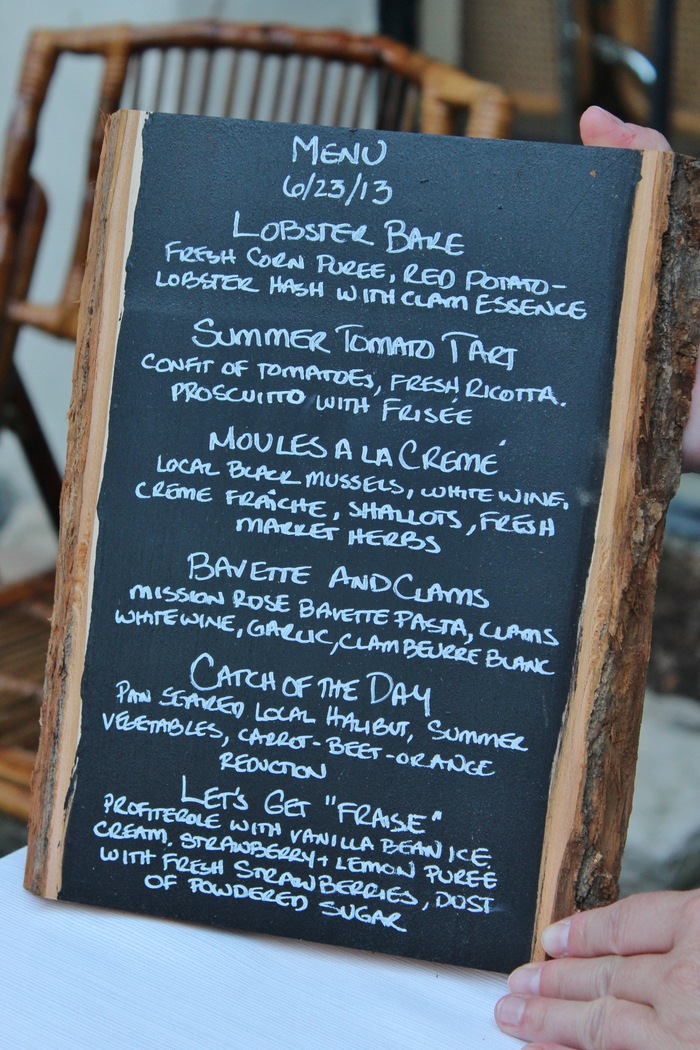 MENU
6/23/13
LOBSTER BAKE
FRESH CORN PUREE, RED POTATO-
LOBSTER HASH WITH CLAM ESSENCE
SUMMER TOMATO TART
CONFIT OF TOMATOES, FRESH RICOTTA.
PROSCUITTO WITH FRISÉE
MOULES A LA CREMÉ
LOCAL BLACK MUSSELS, WHITE WINE,
CRÉME FRAÎCHE, SHALLOTS, FRESH
MARKET HERBS
BAVETTE AND CLAMS
MISSION ROSE BAVETTE PASTA, CLAMS
WHITE WINE, GARLIC, CLAM BEURRE BLANC
CATCH OF THE DAY
PAN SEARED LOCAL HALIBUT, SUMMER
VEGETABLES, CARROT-BEET-ORANGE
REDUCTION
LET'S GET "FRAISE"
PROFITEROLE WITH VANILLA BEAN ICE
CREAM, STRAWBERRY + LEMON PUREE
WITH FRESH STRAWBERRIES, DUST
OF POWDERED SUGAR